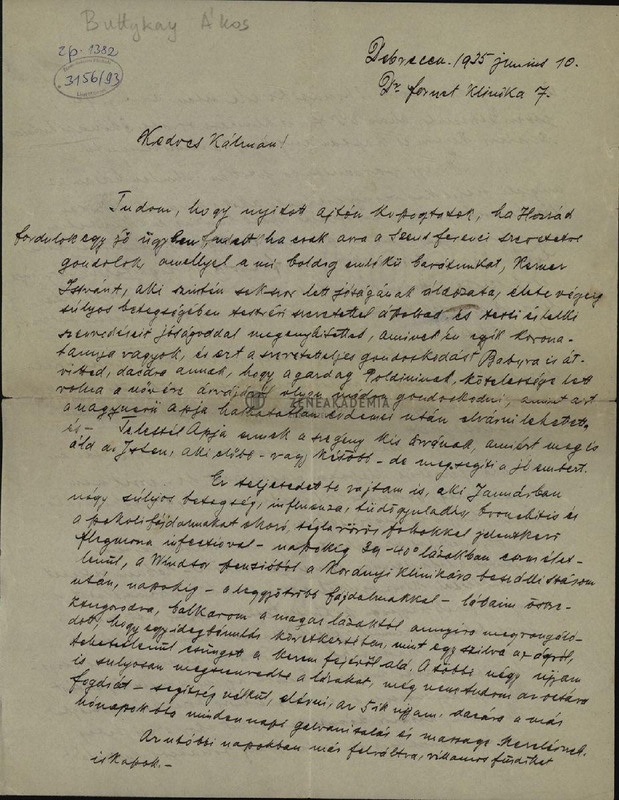 Buttykay Ákos
2p. 1382
3156/93
Debreczen. 1935 junius 10.
Dr fornet Klinika 7.
Kedves Kálmán!
Tudom, hogy nyitott ajtón kopogtatok, ha Hozzád
fordulok egy jó ügyben, mert ha csak arra a Szent ferenci szeretetre
gondolok, amellyel a mi boldog emlékü barátunkat, Kerner
Istvánt, aki szintén sokszor lett jóságának áldozata, élete végéig
súlyos betegségében testvéri szeretettel ápoltad és testi és lelki
szenvedéseit jóságoddal megenyhítetted, aminek én egyik korona-
tanuja vagyok, és ezt a szeretetteljes gondoskodást Babyra is át-
vitted, daczára annak, hogy a gazdag Poldininek, kötelessége lett
volna a nővére árvájáról gondoskodni, amint azt
a nagynevü apja halhatatlan érdemei után elvárni lehetett
ZENEAKADÉMIA
is - Te lettél Apja ennek a szegény kis árvának, amiért meg is
áld a jó Isten, aki előbb - vagy később - de megsegíti a jó embert.
Ez teljesedett be rajtam is, aki Januárban
négy súlyos betegség, influenza, tüdőgyulladás, bronchitis és
a pokoli fájdalmakat okozó, téglavörös foltokkal jelentkező
flegmona infectioval - napokig 39-40° lázakban eszméle-
lenül, a Windsor penzióból a Korányi klinikára beszállításom
után, napokig - a legnagyobb fájdalmakkal - lábaim össze-
zsugorodva, balkarom a magas lázaktól annyira megrongáló-
dott, hogy egy idegbénulás következtében, mint egy szilva az ágról,
tehetetlenül csüngött a kezem fejéről alá. A többi négy ujjam
is sulyosan megszenvedte a lázakat, még nem tudom az octáva
fogását - segítség nélkül, elérni, az 5ik ujjam, daczára a már
hónapok óta mindennapi galvanisálás és massage kezelésnek.
Az utóbbi napokban már felváltva, villamos fürdőket
is kapok. -